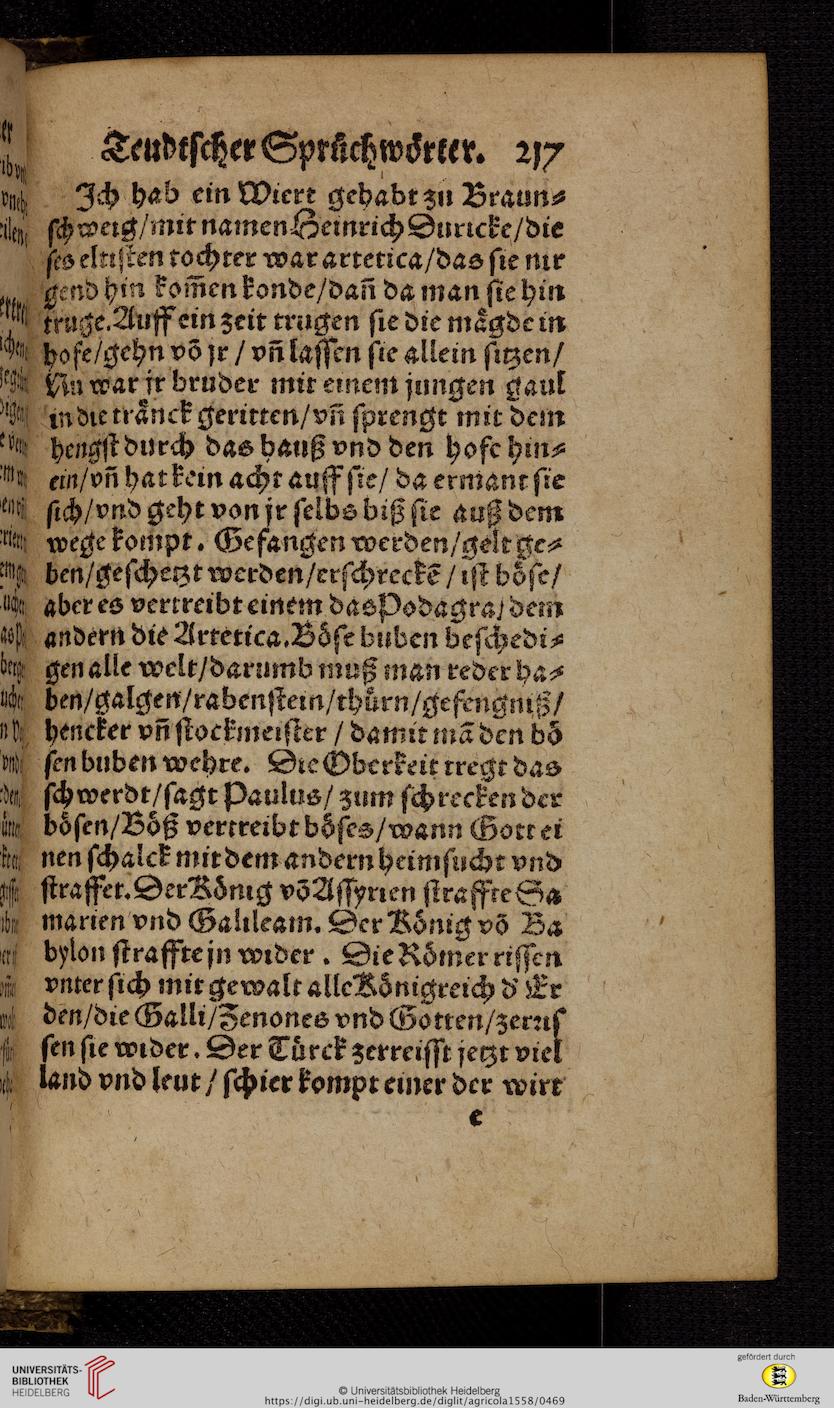 Teudtscher Sprůchwörter. 217
Ich hab ein Wiert gehabt zu Braun⸗
schweig/mit namen Heinrich Duricke/die
ses eltisten tochter war artetica/das sie nir
gend hin kom̃en konde/dañ da man sie hin
truge. Auff ein zeit trugen sie die mägde in
hofe/gehn võ jr / vñ lassen sie allein sitzen/
Nu war jr bruder mit einem jungen gaul
in die tränck geritten/vñ sprengt mit dem
hengst durch das hauß vnd den hofe hin⸗
ein/vñ hat kein acht auff sie/ da ermant sie
sich/vnd geht von jr selbs biß sie auß dem
wege kompt. Gefangen werden/gelt ge⸗
ben/geschetzt werden/erschreckẽ / ist böse/
aber es vertreibt einem das Podagra/ dem
andern die Artetica. Böse buben beschedi⸗
gen alle welt/darumb muß man reder ha⸗
ben/galgen/rabenstein/thürn/gefengniß/
hencker vñ stockmeister / damit mã den bö
sen buben wehre. Die Oberkeit tregt das
schwerdt/sagt Paulus/ zum schrecken der
bösen/Böß vertreibt böses/wann Gott ei
nen schalck mit dem andern heimsucht vnd
straffet. Der König võ Assyrien straffte Sa
marien vnd Galileam. Der König võ Ba
bylon straffte jn wider . Die Römer rissen
vnter sich mit gewalt alle Königreich d' Er
den/die Galli/Zenones vnd Gotten/zerris
sen sie wider. Der Türck zerreisst jetzt viel
land vnd leut / schier kompt einer der wirt
e
UNIVERSITÄTS-
BIBLIOTHEK
HEIDELBERG
© Universitätsbibliothek Heidelberg
https://digi.ub.uni-heidelberg.de/diglit/agricola1558/0469
gefördert durch
Baden-Württemberg